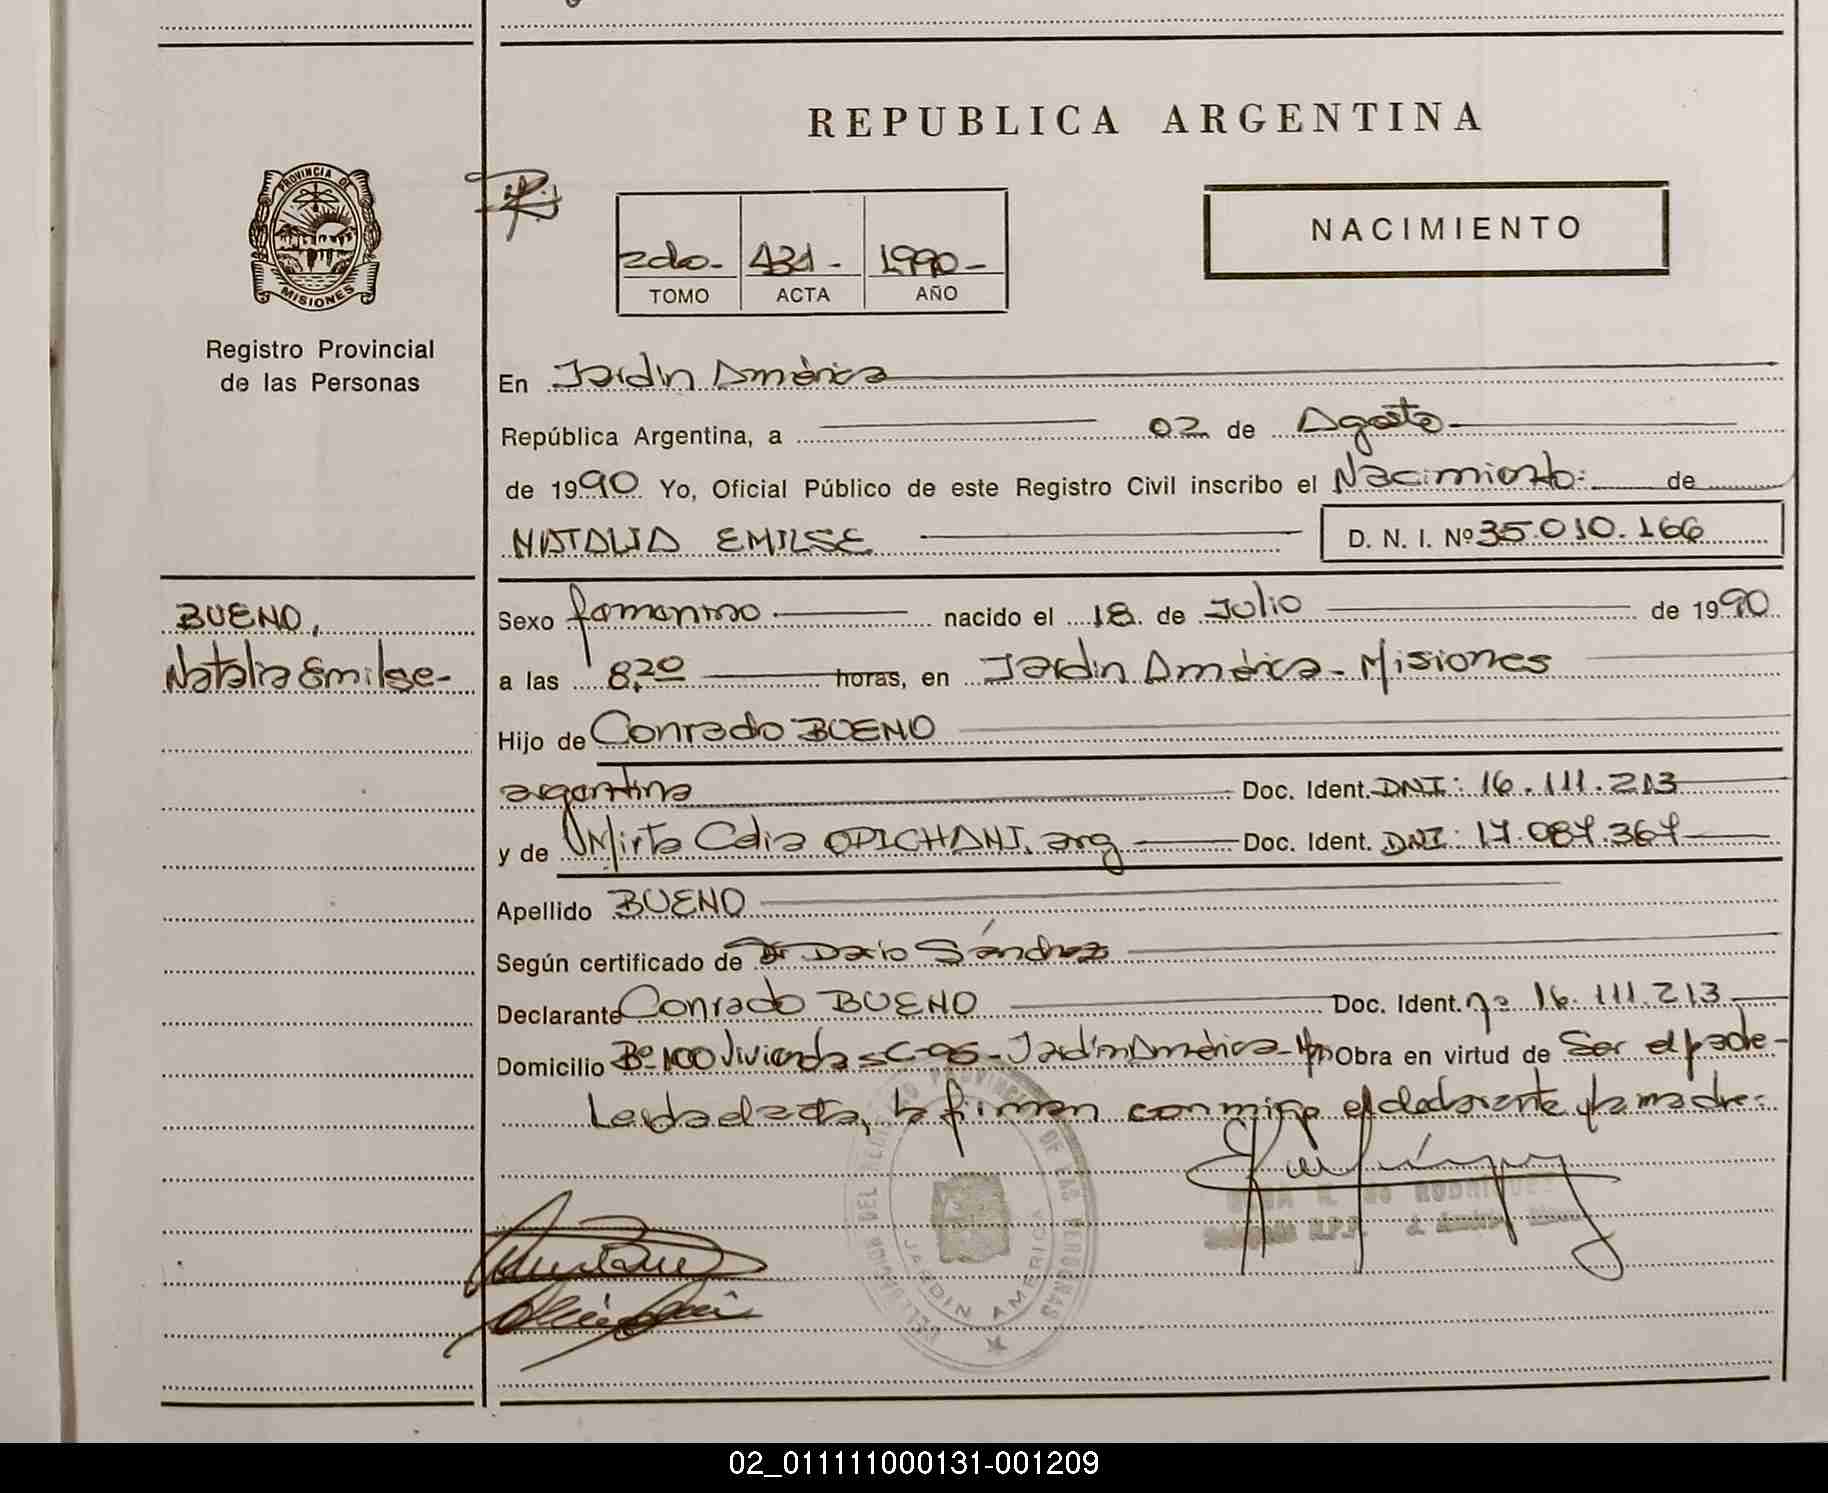 REPUBLICA ARGENTINA
PROVINCIA DE
MISIONES
Registro Provincial
de las Personas
2do- 431- 1990-
TOMO ACTA AÑO
NACIMIENTO
En Jardín América
República Argentina, a 02 de Agosto
de 1990 Yo, Oficial Público de este Registro Civil inscribo el Nacimiento: de
NATALIA EMILSE D. N. I. Nº 35.010.166
BUENO,
Natalia Emilse-
Sexo femenino nacido el 18 de Julio de 1990
a las 8,20 horas, en Jardín América - Misiones
Hijo de Conrado BUENO
argentina Doc. Ident. DNI: 16.111.213
y de Mirta Celia OPICHANI. arg Doc. Ident. DNI: 17.087.367
Apellido BUENO
Según certificado de Dr Dario Sánchez
Declarante Conrado BUENO Doc. Ident. nº 16.111.213
Domicilio Bº 100 Viviendas C-95- Jardín América - Obra en virtud de Ser el padre-
Leida el acta, la firman conmigo el declarante y la madre:
PROVINCIAL DE LAS PERSONAS
JARDIN AMERICA
02_011111000131-001209